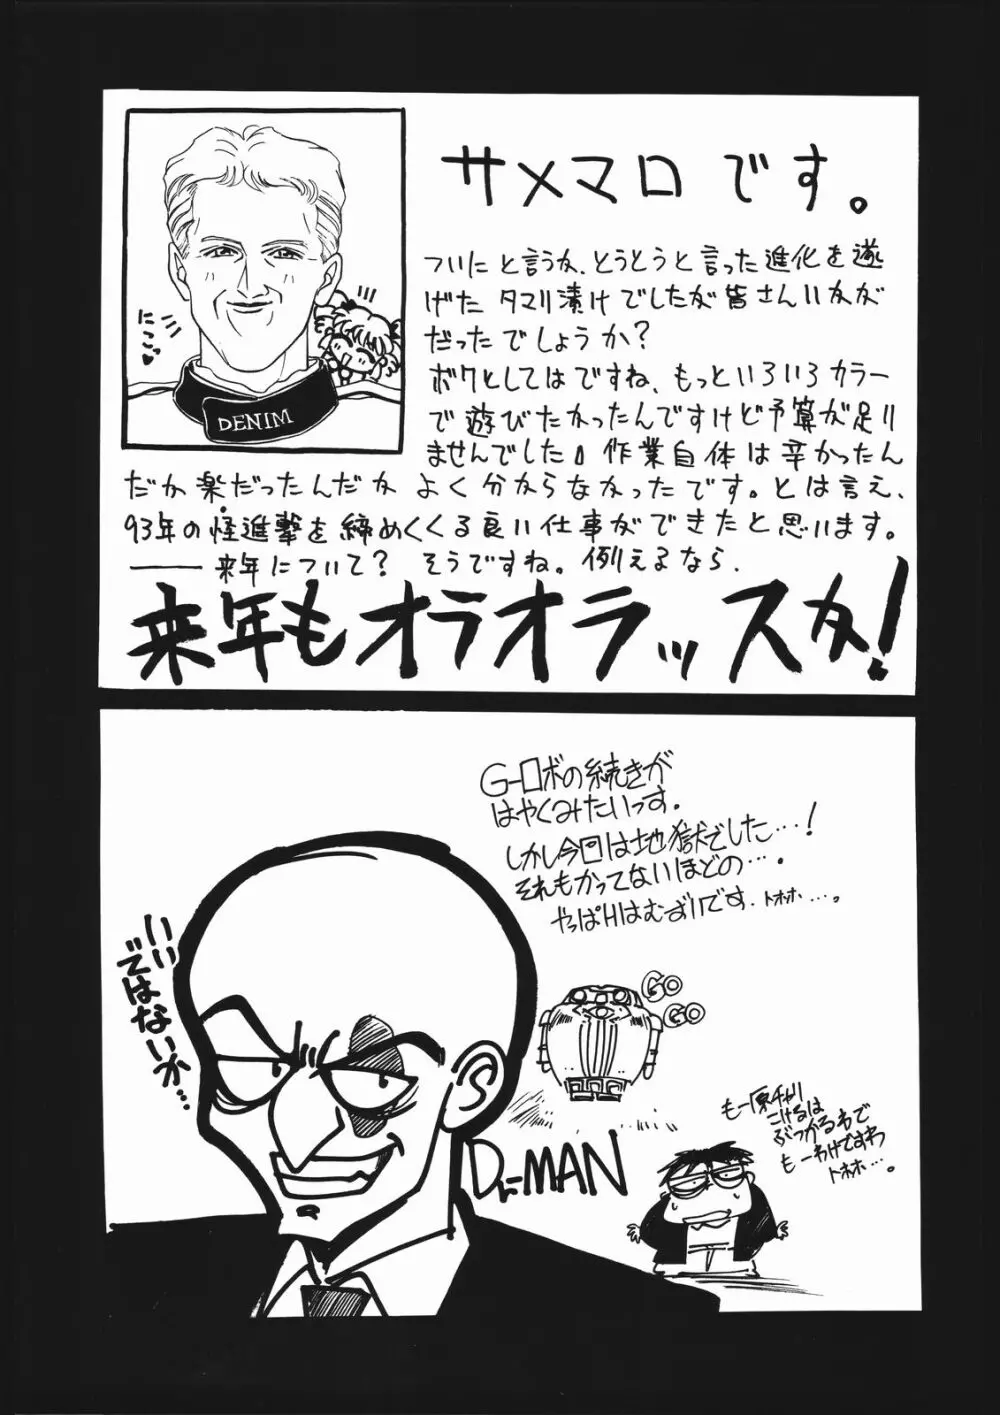 サメマロ です。
ついにと言うか、とうとうと言った進化を遂
げたタマリ漬けでしたが皆さんいかが
だったでしょうか？
ボクとしてはですね、もっといろいろカラー
で遊びたかったんですけど予算が足り
ませんでした。作業自体は辛かったん
だか楽だったんだか よく分からなかったです。とは言え、
93年の怪進撃を締めくくる良い仕事ができたと思います。
── 来年について？ そうですね。例えるなら、
来年もオラオラッスよ！
にこっ♥
DENIM
G-ロボの続きが
はやくみたいっす。
しかし今回は地獄でした…！
それもかってないほどの…。
やっぱHはむずいです. トホホ…。
いい
ではないか…
GO
GO
Dr-MAN
もー原チャリ
こけるは
ぶつかるわで
もーわけですわ
トホホ…。